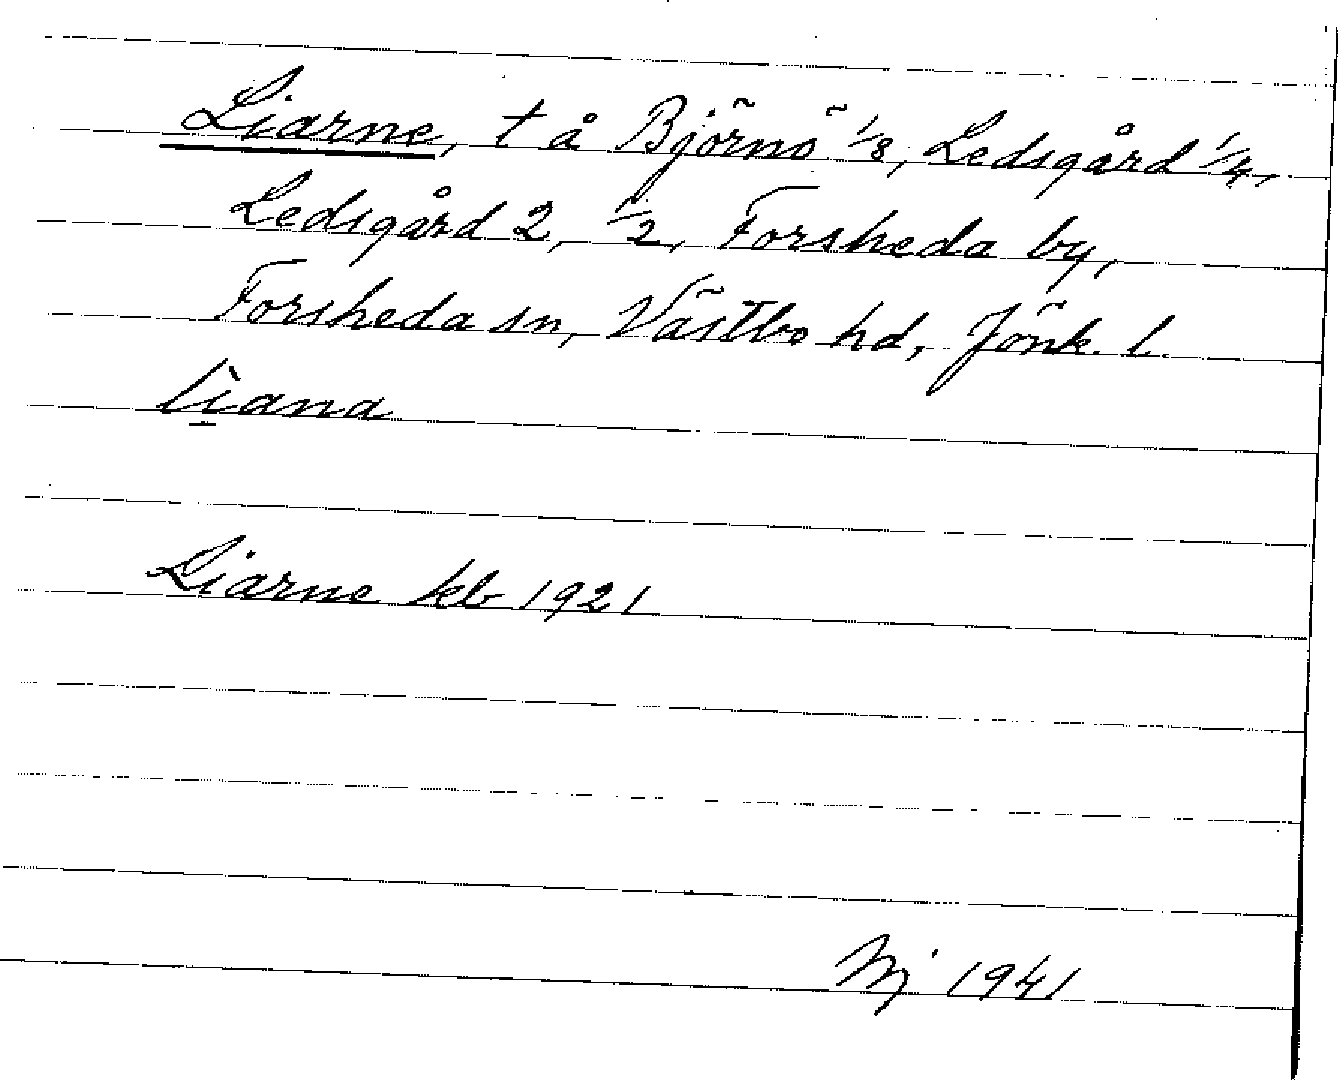 Liarne, t å Björnö 1/8, Ledsgård 1/4,
Ledsgård 2, 1/2, Forsheda by,
Forsheda sn, Västbo hd, Jönk. l.
lìana
Liarne kb 1921
Nj 1941